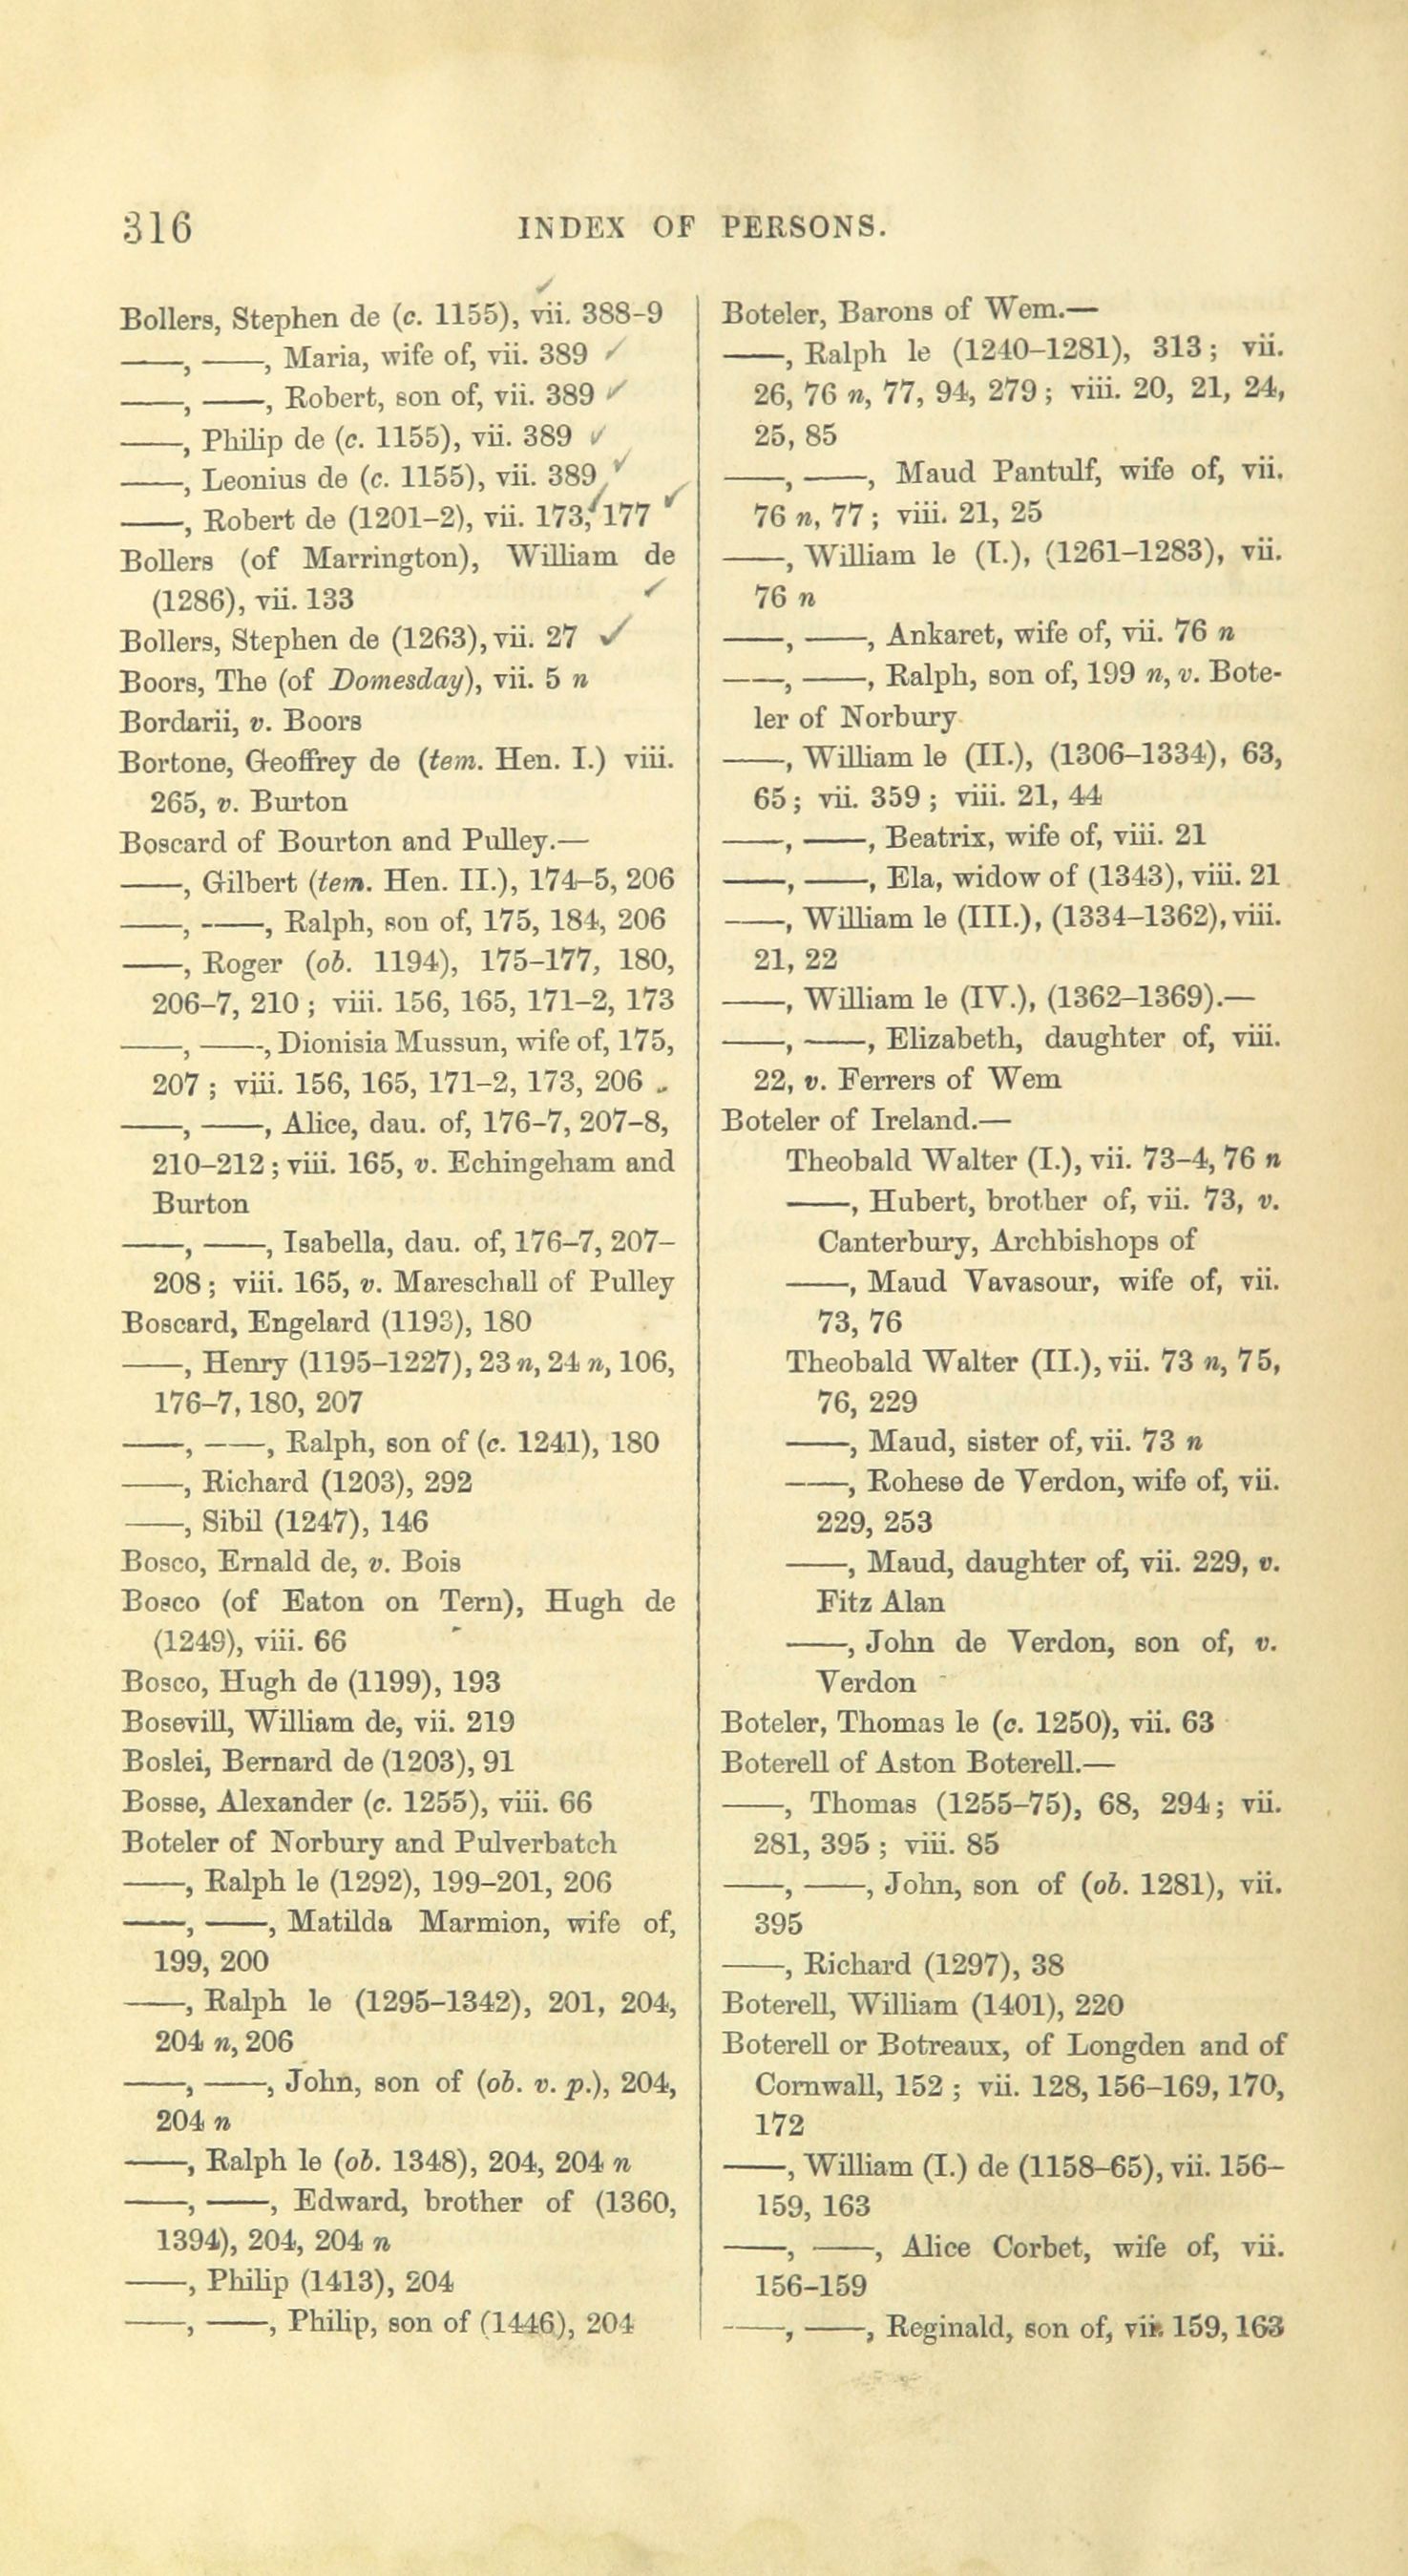 316
INDEX OF PERSONS.
Bollers, Stephen de (c. 1155), vii. 388–9
——, ——, Maria, wife of, vii. 389
——, ——, Robert, son of, vii. 389
——, Philip de (c. 1155), vii. 389
——, Leonius de (c. 1155), vii. 389
——, Robert de (1201–2), vii. 173, 177
Bollers (of Marrington), William de
(1286), vii. 133
Bollers, Stephen de (1263), vii. 27
Boors, The (of Domesday), vii. 5 n
Bordarii, v. Boors
Bortone, Geoffrey de (tem. Hen. I.) viii.
265, v. Burton
Boscard of Bourton and Pulley.—
——, Gilbert (tem. Hen. II.), 174–5, 206
——, ——, Ralph, son of, 175, 184, 206
——, Roger (ob. 1194), 175–177, 180,
206–7, 210 ; viii. 156, 165, 171–2, 173
——, ——, Dionisia Mussun, wife of, 175,
207 ; viii. 156, 165, 171–2, 173, 206
——, ——, Alice, dau. of, 176–7, 207–8,
210–212 ; viii. 165, v. Echingeham and
Burton
——, ——, Isabella, dau. of, 176–7, 207–
208 ; viii. 165, v. Mareschall of Pulley
Boscard, Engelard (1193), 180
——, Henry (1195–1227), 23 n, 24 n, 106,
176–7, 180, 207
——, ——, Ralph, son of (c. 1241), 180
——, Richard (1203), 292
——, Sibil (1247), 146
Bosco, Ernald de, v. Bois
Bosco (of Eaton on Tern), Hugh de
(1249), viii. 66
Bosco, Hugh de (1199), 193
Bosevill, William de, vii. 219
Boslei, Bernard de (1203), 91
Bosse, Alexander (c. 1255), viii. 66
Boteler of Norbury and Pulverbatch
——, Ralph le (1292), 199–201, 206
——, ——, Matilda Marmion, wife of,
199, 200
——, Ralph le (1295–1342), 201, 204,
204 n, 206
——, ——, John, son of (ob. v. p.), 204,
204 n
——, Ralph le (ob. 1348), 204, 204 n
——, ——, Edward, brother of (1360,
1394), 204, 204 n
——, Philip (1413), 204
——, ——, Philip, son of (1446), 204
Boteler, Barons of Wem.—
——, Ralph le (1240–1281), 313 ; vii.
26, 76 n, 77, 94, 279 ; viii. 20, 21, 24,
25, 85
——, ——, Maud Pantulf, wife of, vii.
76 n, 77 ; viii. 21, 25
——, William le (I.), (1261–1283), vii.
76 n
——, ——, Ankaret, wife of, vii. 76 n
——, ——, Ralph, son of, 199 n, v. Bote-
ler of Norbury
——, William le (II.), (1306–1334), 63,
65 ; vii. 359 ; viii. 21, 44
——, ——, Beatrix, wife of, viii. 21
——, ——, Ela, widow of (1343), viii. 21
——, William le (III.), (1334–1362), viii.
21, 22
——, William le (IV.), (1362–1369).—
——, ——, Elizabeth, daughter of, viii.
22, v. Ferrers of Wem
Boteler of Ireland.—
Theobald Walter (I.), vii. 73–4, 76 n
——, Hubert, brother of, vii. 73, v.
Canterbury, Archbishops of
——, Maud Vavasour, wife of, vii.
73, 76
Theobald Walter (II.), vii. 73 n, 75,
76, 229
——, Maud, sister of, vii. 73 n
——, Rohese de Verdon, wife of, vii.
229, 253
——, Maud, daughter of, vii. 229, v.
Fitz Alan
——, John de Verdon, son of, v.
Verdon
Boteler, Thomas le (c. 1250), vii. 63
Boterell of Aston Boterell.—
——, Thomas (1255–75), 68, 294 ; vii.
281, 395 ; viii. 85
——, ——, John, son of (ob. 1281), vii.
395
——, Richard (1297), 38
Boterell, William (1401), 220
Boterell or Botreaux, of Longden and of
Cornwall, 152 ; vii. 128, 156–169, 170,
172
——, William (I.) de (1158–65), vii. 156–
159, 163
——, ——, Alice Corbet, wife of, vii.
156–159
——, ——, Reginald, son of, vii. 159, 163